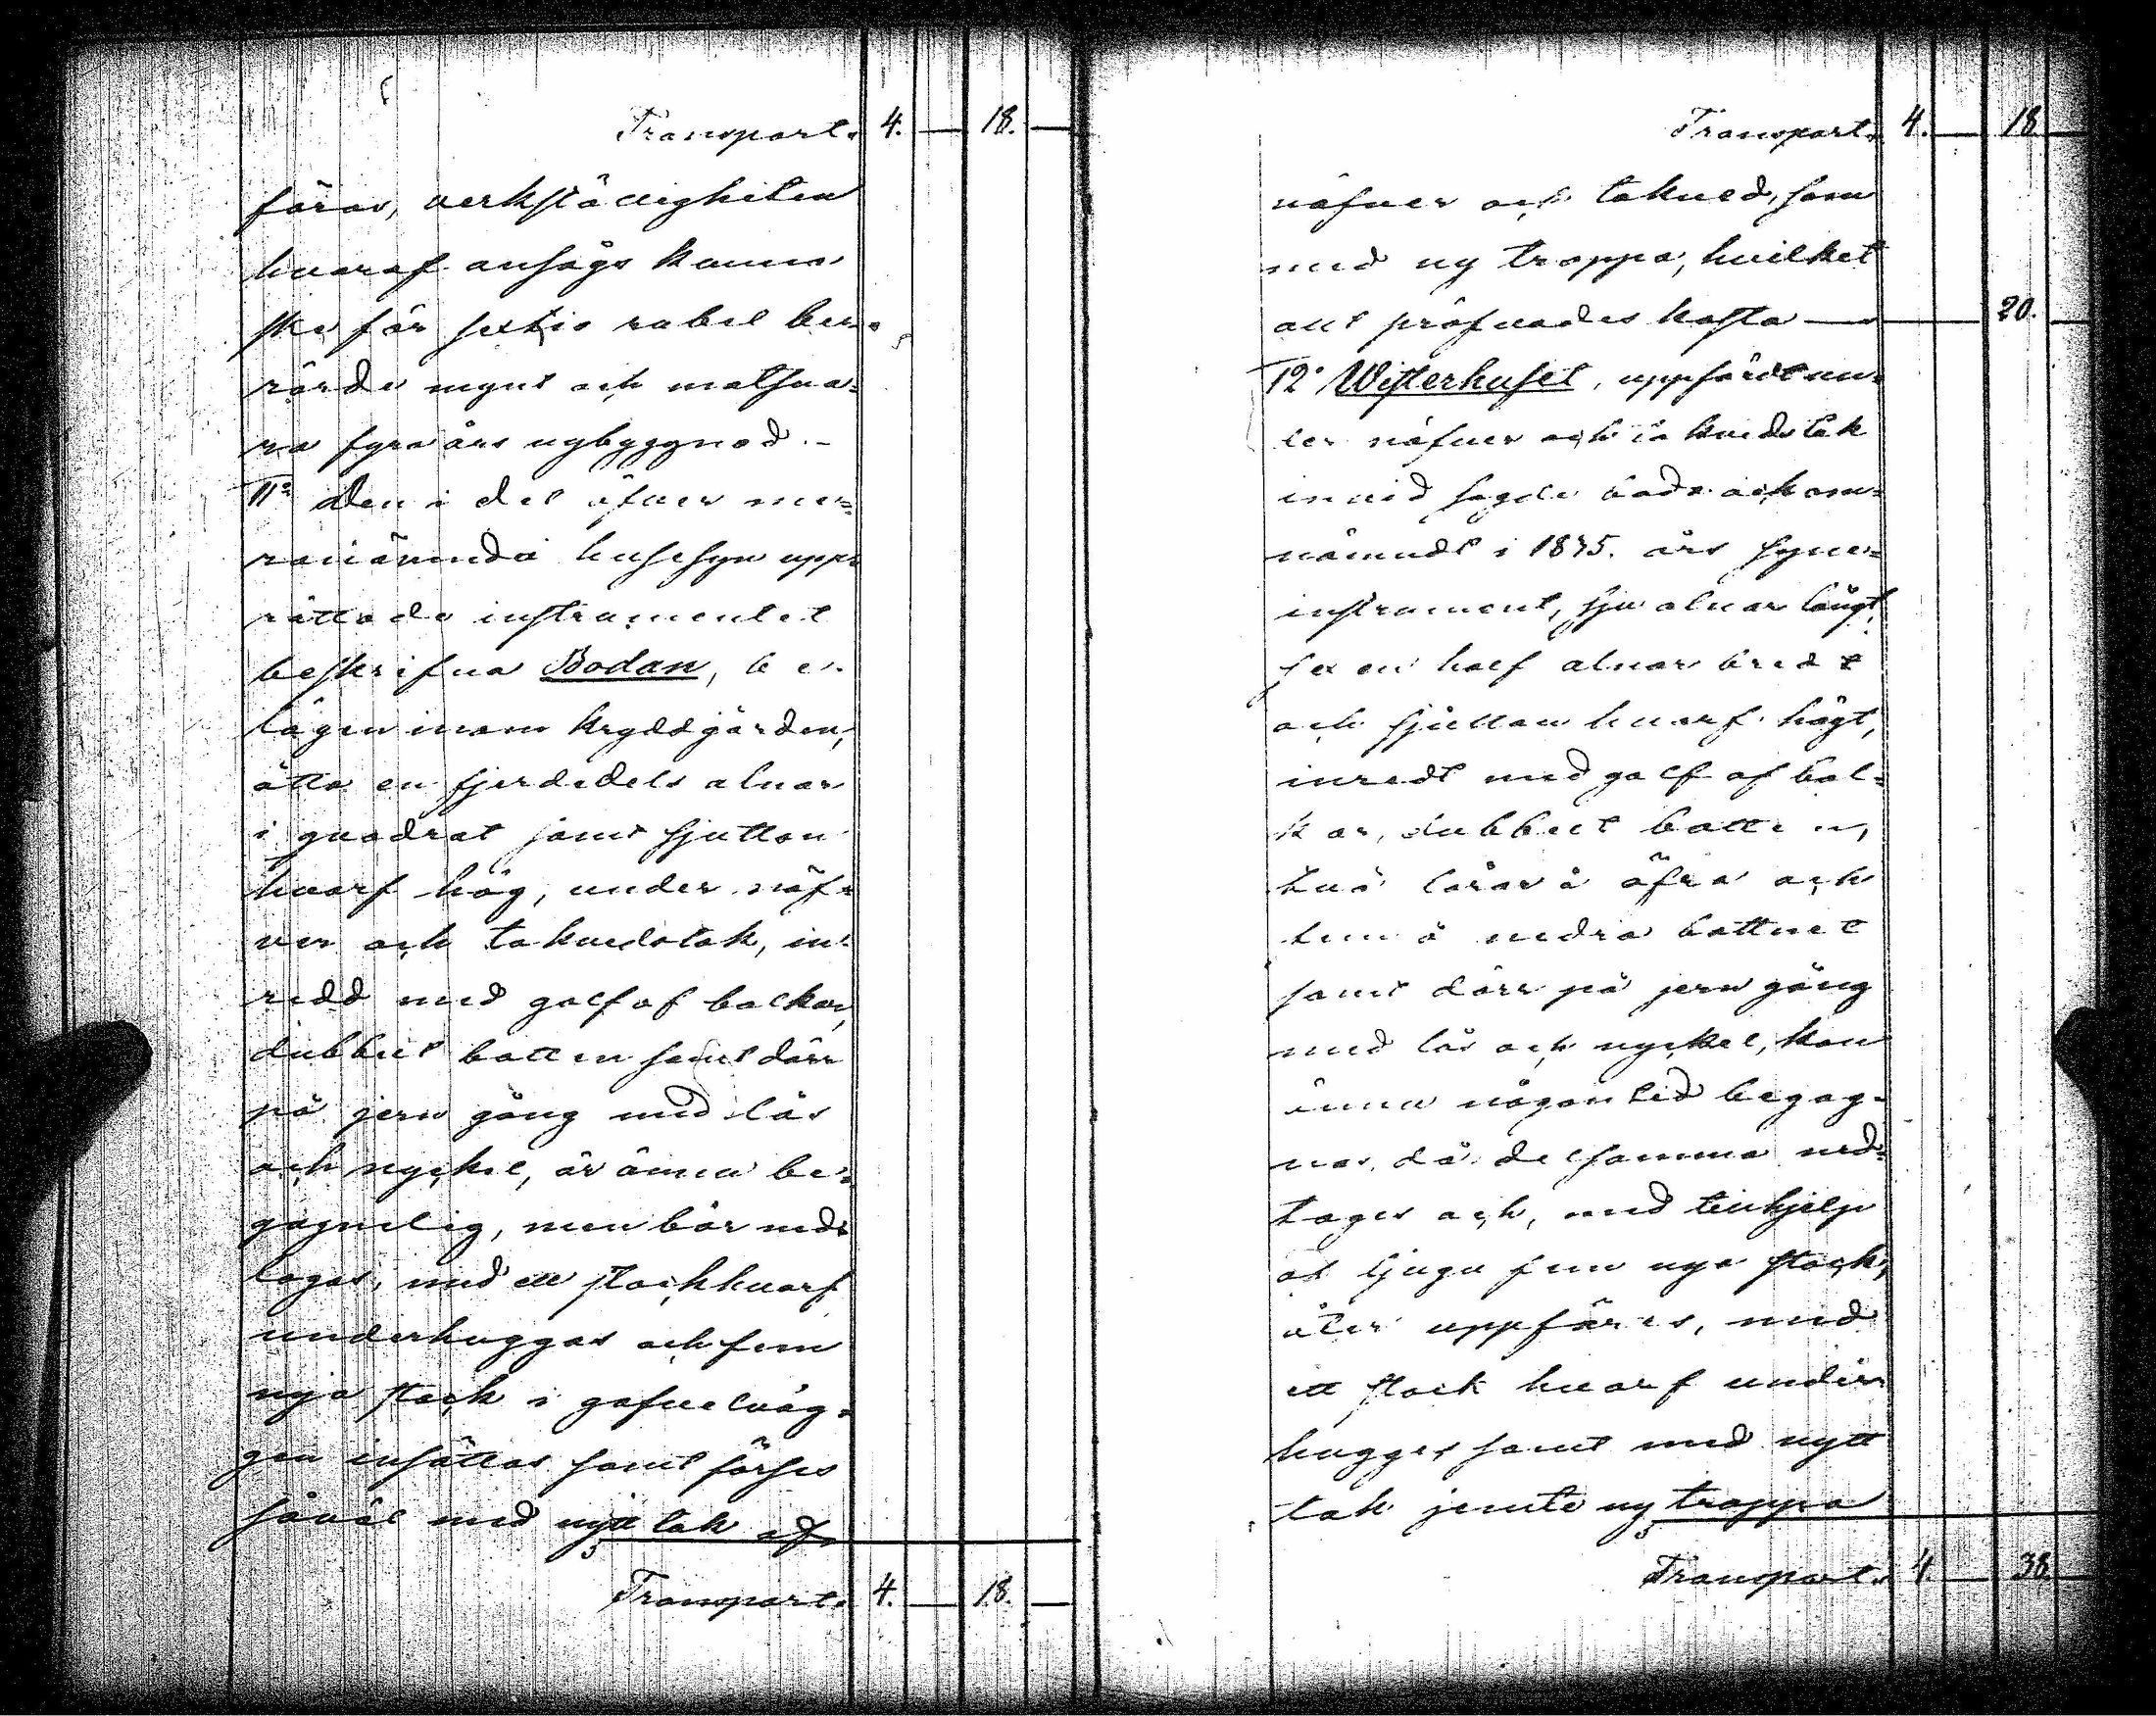 Transport. 4. — 18. —
föras, verkställigheten
hvaraf ansågs kunna
ske för sextio rubel be¬
rörde mynt och motsva¬
ra fyra års nybyggnad. –
11º Den i det öfver me¬
ranämnda husesyn upp¬
rättade instrumentet
beskrifna Bodan, be¬
lägen inom kryddgården,
åtta en fjerdedels alnar
i quadrat samt sjutton
hvarf hög, under näf¬
ver och takvedstak, in¬
redd med golf af balkar,
dubbelt botten samt dörr
på jern gång med lås
och nyckel, är ännu be¬
gagnelig, men bör ned¬
tagas, med ett stockhvarf
underhuggas och fem
nya stock i gafvelväg¬
gen insättas samt förses
såväl med nytt tak af
Transport. 4. — 18. —
Transport. 4. — 18 —
näfver och takved, som
med ny trappa, hvilket
allt pröfvades kosta — 20. —
12º Wisterhuset, uppfördt un¬
der näfver och takvedstak
invid sagde bod och om¬
nämndt i 1875. års syne¬
instrument, sju alnar långt,
sex en half alnar bredt
och sjutton hvarf högt,
inredt med golf af bal¬
kar, dubbelt botten,
två lårar å öfra och
fem å nedra bottnet
samt dörr på jern gång
med lås och nyckel, kan
ännu någon tid begag¬
nas, då detsamma ned¬
tages och, med tillhjelp
af tjugu fem nya stock,
åter uppföres, med
ett stock hvarf under¬
hugges samt med nytt
tak jemte ny trappa
Transport. 4. — 38 —